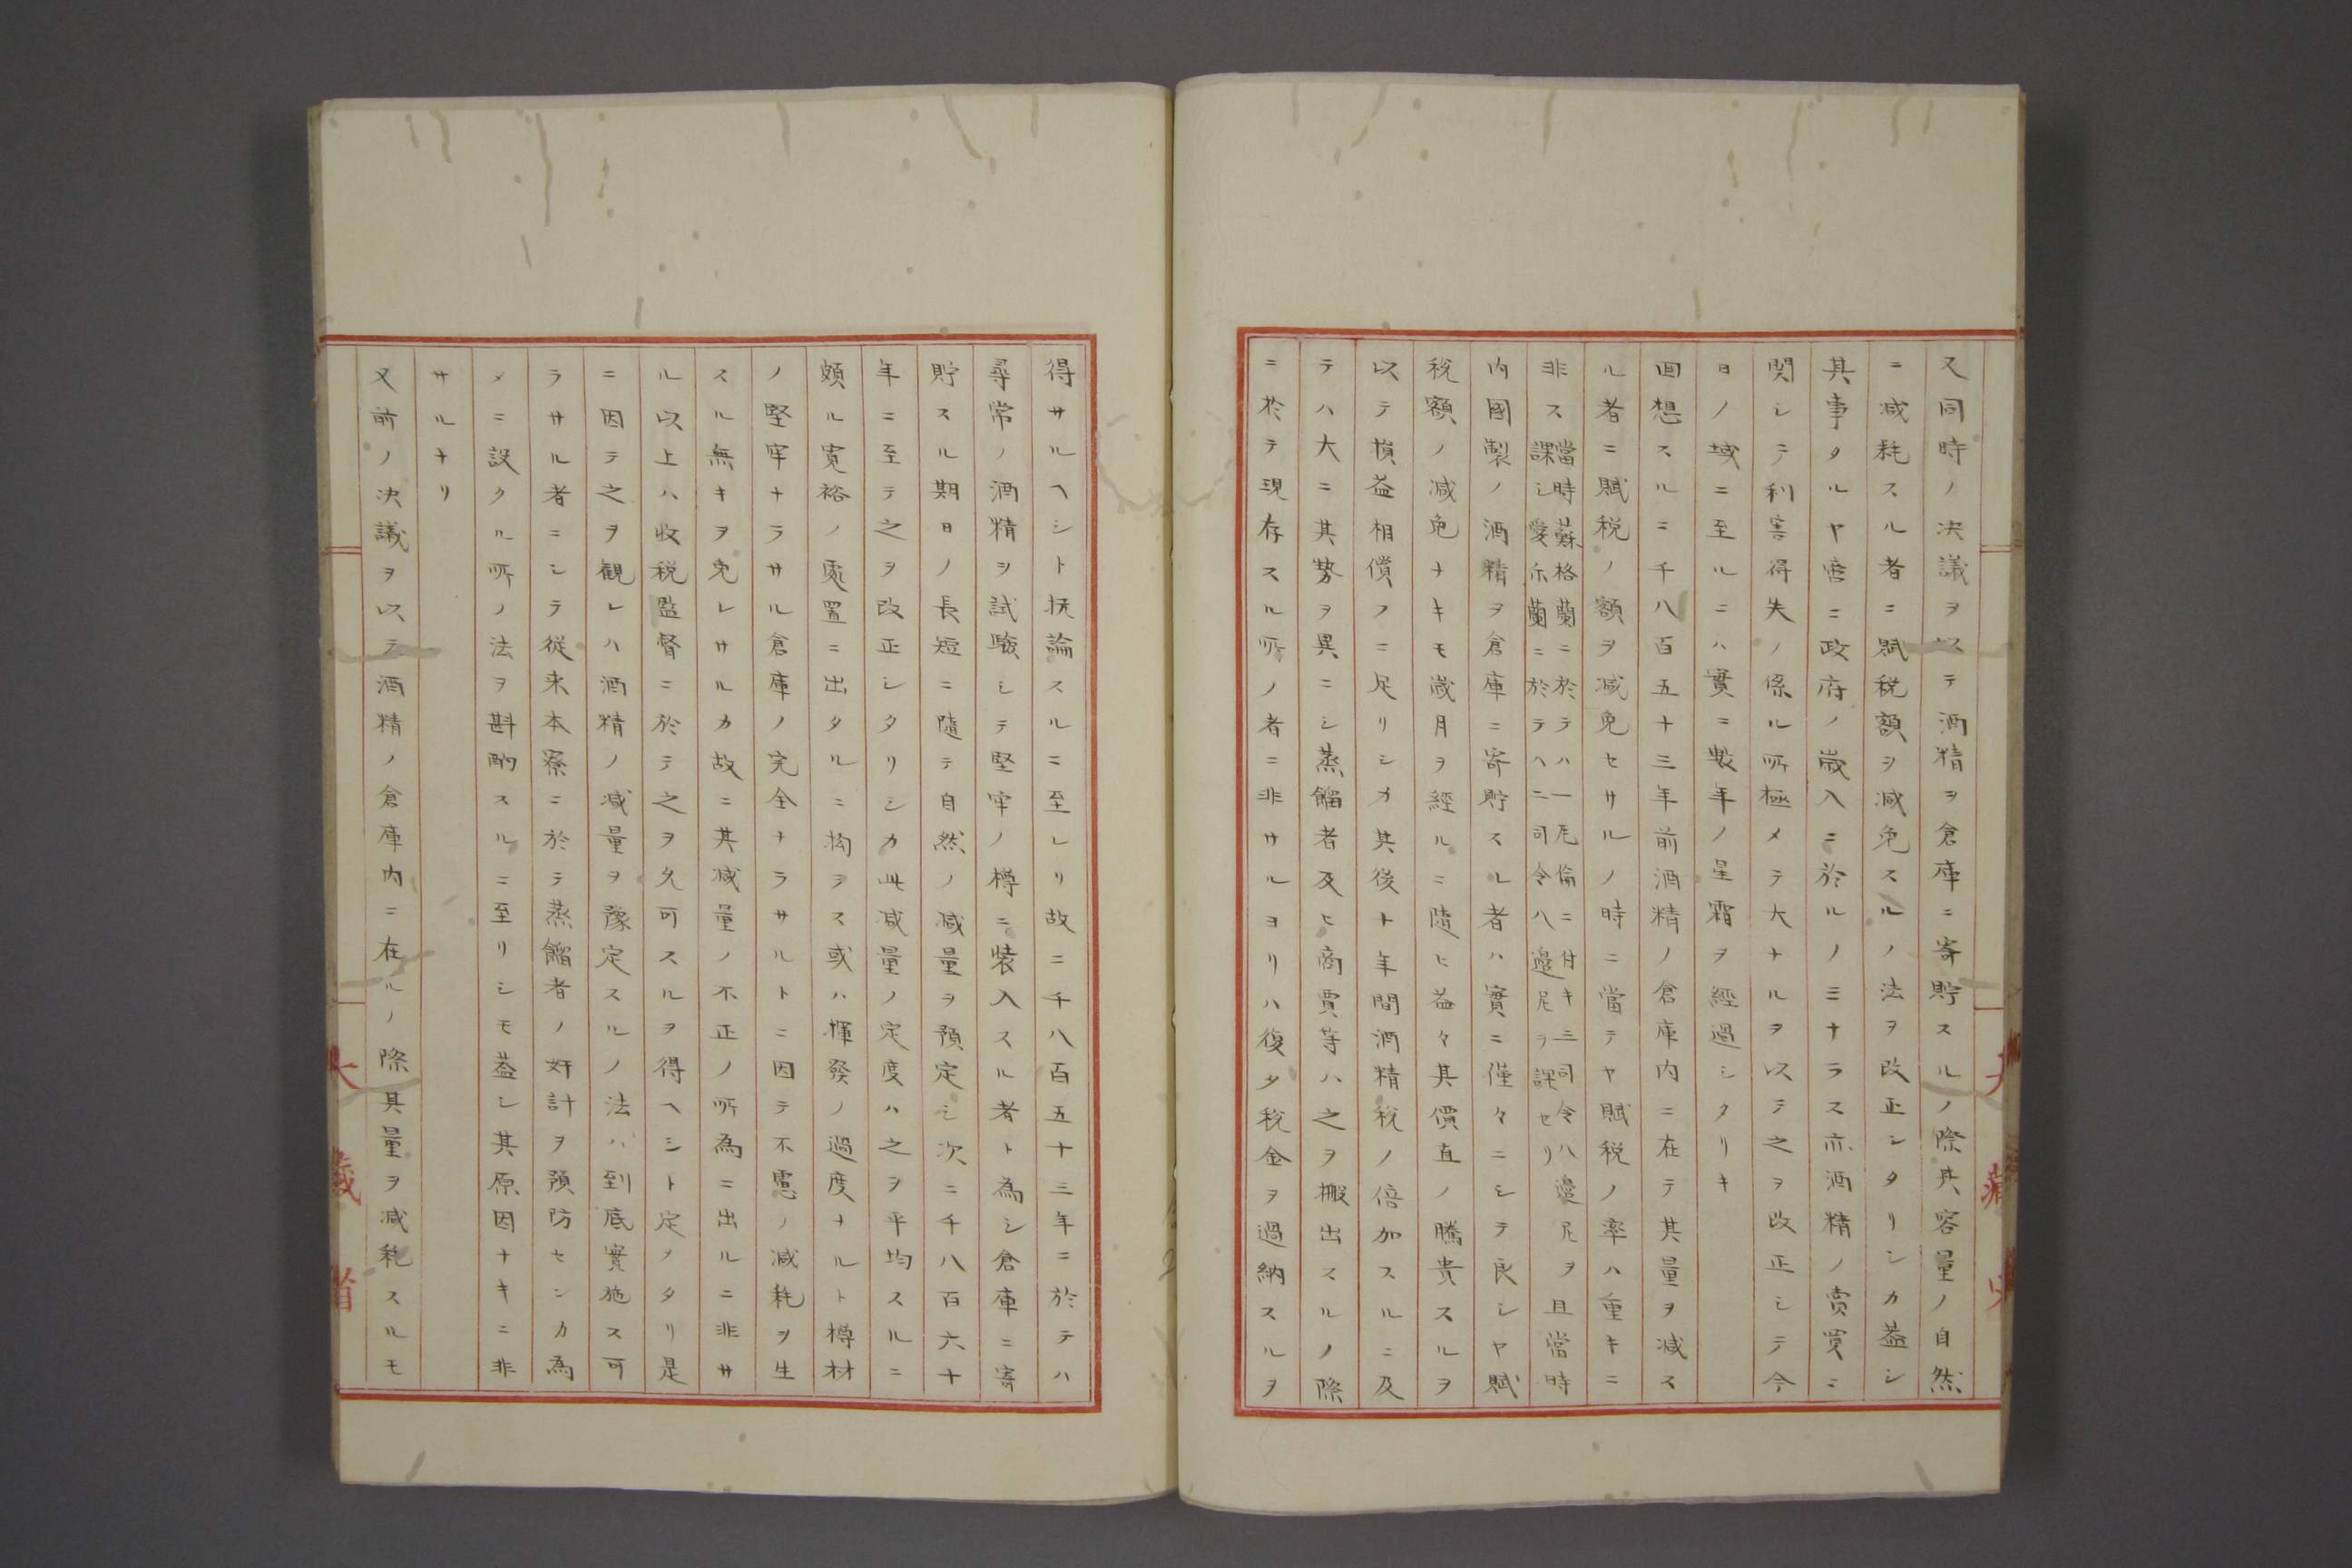 又同時ノ決議ヲ以テ酒精ヲ倉庫ニ寄貯スルノ際其容量ノ自然
ニ減耗スル者ニ賦税額ヲ減免スルノ法ヲ改正シタリシカ蓋シ
其事タルヤ啻ニ政府ノ歳入ニ於ルノミナラス亦酒精ノ賣買ニ
関シテ利害得失ノ係ル所極メテ大ナルヲ以テ之ヲ改正シテ今
日ノ域ニ至ルニハ實ニ数年ノ星霜ヲ經過シタリキ
回想スルニ千八百五十三年前酒精ノ倉庫内ニ在テ其量ヲ減ス
ル者ニ賦税ノ額ヲ減免セサルノ時ニ當テヤ賦税ノ率ハ重キニ
非ス當時蘇格蘭ニ於テハ一瓦倫ニ付キ三司令八邊尼ヲ且當時
課シ愛尓蘭ニ於テハ二司令八邊尼ヲ課セリ
内國製ノ酒精ヲ倉庫ニ寄貯スル者ハ實ニ僅々ニシテ良シヤ賦
税額ノ減免ナキモ歳月ヲ經ルニ隨ヒ益々其價直ノ騰貴スルヲ
以テ損益相償フニ足リシカ其後十年間酒精税ノ倍加スルニ及
テハ大ニ其勢ヲ異ニシ蒸餾者及ヒ商賈等ハ之ヲ搬出スルノ際
ニ於テ現存スル所ノ者ニ非サルヨリハ復タ税金ヲ過納スルヲ
得サルヘシト抗論スルニ至レリ故ニ千八百五十三年ニ於テハ
尋常ノ酒精ヲ試驗シテ堅牢ノ樽ニ装入スル者ト為シ倉庫ニ寄
貯スル期日ノ長短ニ隨テ自然ノ減量ヲ預定シ次ニ千八百六十
年ニ至テ之ヲ改正シタリシカ此減量ノ定度ハ之ヲ平均スルニ
頗ル寛裕ノ處置ニ出タルニ拘ラス或ハ揮發ノ過度ナルト樽材
ノ堅牢ナラサル倉庫ノ完全ナラサルトニ因テ不慮ノ減耗ヲ生
スル無キヲ免レサルカ故ニ其減量ノ不正ノ所為ニ出ルニ非サ
ル以上ハ收税監督ニ於テ之ヲ允可スルヲ得ヘシト定メタリ是
ニ因テ之ヲ観レハ酒精ノ減量ヲ豫定スルノ法ハ到底實施ス可
ラサル者ニシテ従来本寮ニ於テ蒸餾者ノ奸計ヲ預防センカ為
メニ設クル所ノ法ヲ斟酌スルニ至リシモ蓋シ其原因ナキニ非
サルナリ
又前ノ決議ヲ以テ酒精ノ倉庫内ニ在ルノ際其量ヲ減耗スルモ
大藏省